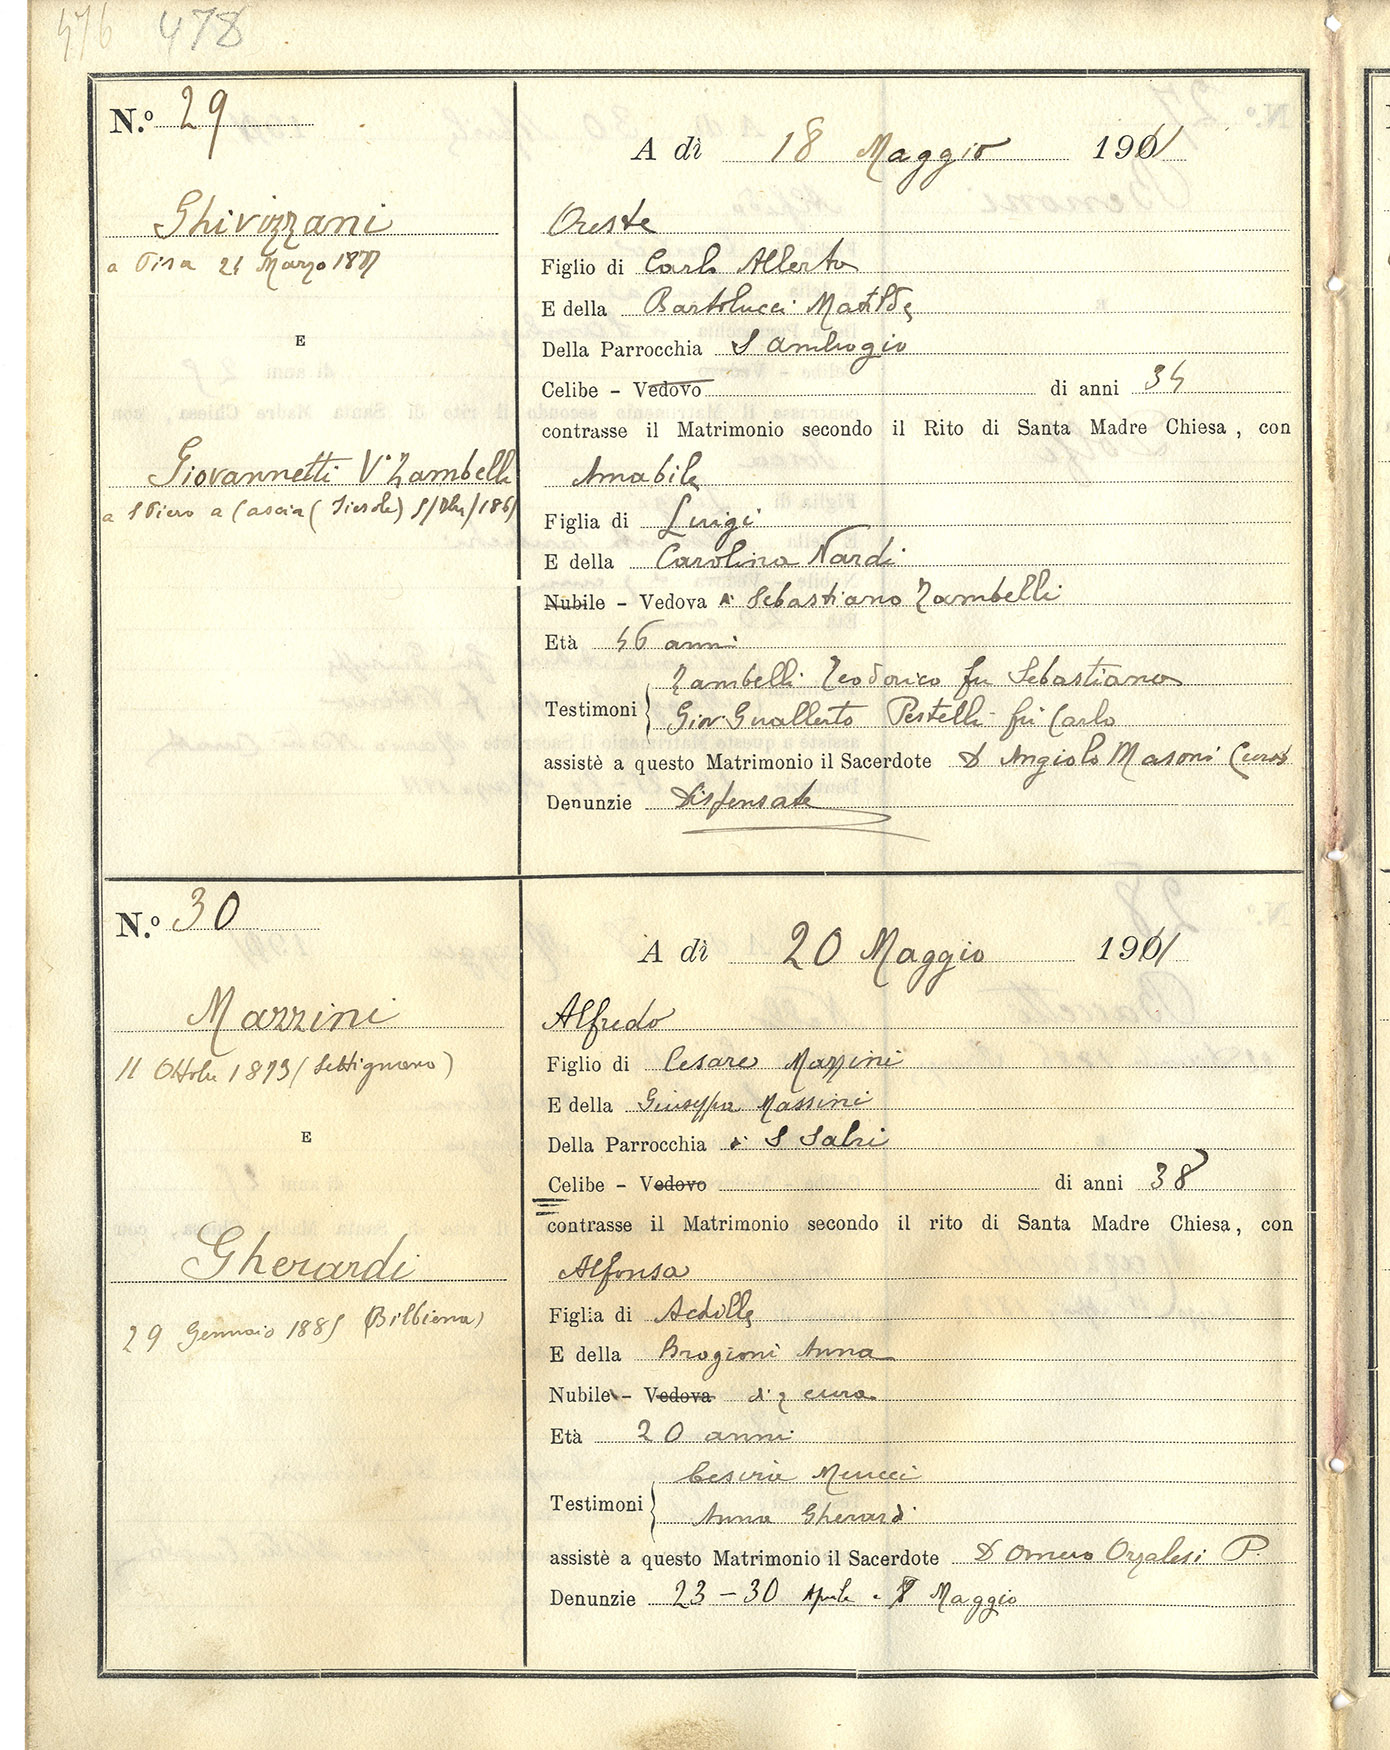 478
N.º 29
A dì 18 Maggio 1911
Ghivizzani
a Pisa 24 Marzo 1877
E
Giovannetti Vª Zambelli
a S Piero a Cascia (Fiesole)
Oreste
Figlio di Carlo Alberto
E della Bartolucci Matilde
Della Parrocchia S Ambrogio
Celibe - Vedovo di anni 34
contrasse il Matrimonio secondo il Rito di Santa Madre Chiesa, con
Amabile
Figlia di Luigi
E della Carolina Nardi
Nubile - Vedova di Sebastiano Zambelli
Età 46 anni
Testimoni Zambelli Teodorico fu Sebastiano
Giov Gualberto Pestelli fu Carlo
assistè a questo Matrimonio il Sacerdote D Angiolo Masoni
Denunzie Dispensate
N.º 30
A dì 20 Maggio 1911
Mazzini
11 Ottobre 1873 (Settignano)
E
Gherardi
29 Gennaio (Bibbiena)
Alfredo
Figlio di Cesare Mazzini
E della Giuseppa Massini
Della Parrocchia di S Salvi
Celibe - Vedovo di anni 38
contrasse il Matrimonio secondo il rito di Santa Madre Chiesa, con
Alfonsa
Figlia di Achille
E della Brogioni Anna
Nubile - Vedova di q cura
Età 20 anni
Testimoni Cesira Meucci
Anna Gherardi
assistè a questo Matrimonio il Sacerdote D Omero Orzalesi P.
Denunzie 23 - 30 Aprile e 7 Maggio